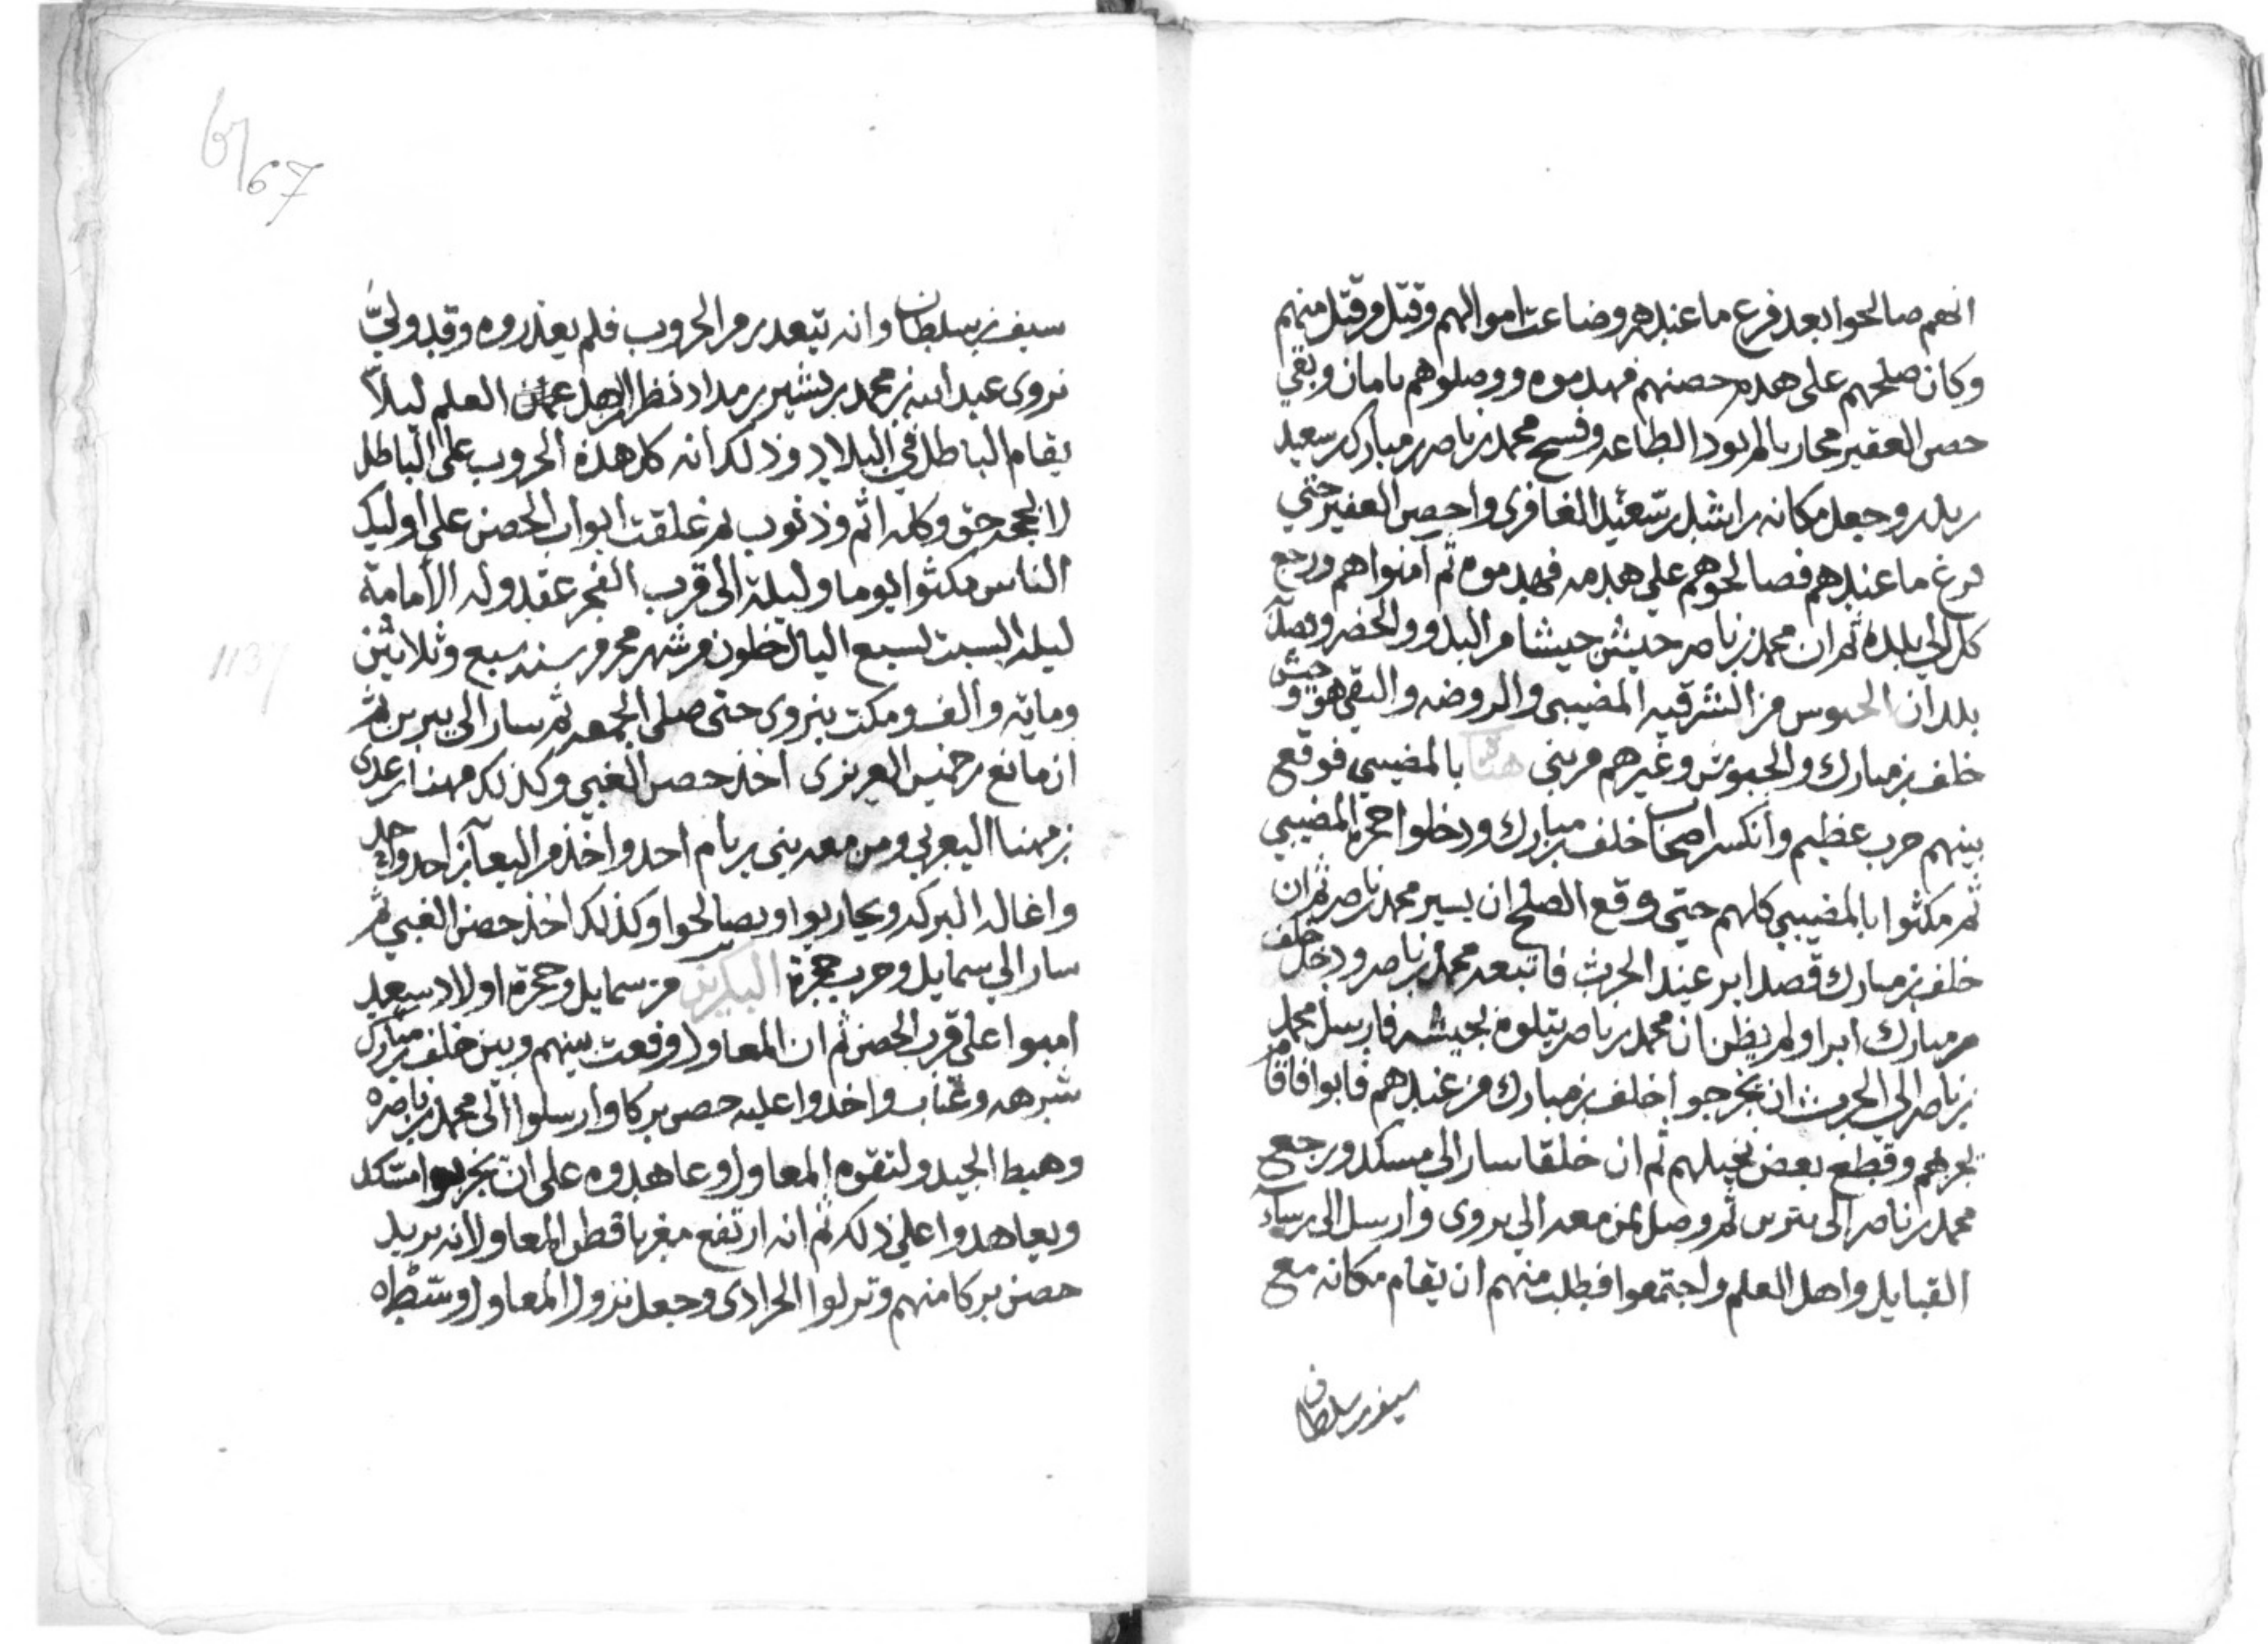 انهم صالحوا بعد فرع ما عندهم وضاعت اموالهم وقتل من قتل منهم
وكان صلحهم على هدم حصنهم فهدموه ووصلوهم بامان وبقي
حصن العقير محاربا لم يود الطاعه وفسح محمد بن ناصر بن مبارك بن سعيد
بن بدر وجعل مكانه راشد بن سعيد الغافري واحصر العقير حتى
فرغ ما عندهم فصالحوهم على هدمه فهدموه ثم آمنواهم ورجع
كل الى بلده ثم ان محمد بن ناصر جيش جيشا من البدو والحضر وقصد
بلدان الحبوس من الشرقيه المضيبى والروضه والتقي هو وجيش
خلف بن مبارك والحبوش وغيرهم من بني هناة بالمضيبي فوقع
بينهم حرب عظيم وانكسر اصحاب خلف بن مبارك ودخلوا حجرة المضيبي
ثم مكثوا بالمضيبي كلهم حتى وقع الصلح ان يسير محمد بن ناصر ثم ان
خلف بن مبارك قصد ابر عند الحرث فاتبعه محمد بن ناصر ودخل خلف
بن مبارك ابرا ولم يظن ان محمد بن ناصر يتلوه بجيشه فارسل محمد
بن ناصر الى الحرث ان يخرجوا خلف بن مبارك من عندهم فابوا فاقام
بحربهم وقطع بعض نخيلهم ثم ان خلفا سار الى مسكد ورجع
محمد بن ناصر الى يبرين ثم وصل بمن معه الى نزوى وارسل الى رساء
القبايل واهل العلم واجتمعوا فطلب منهم ان يقام مكانه مع
سيف بن سلطان
6/67
سيف بن سلطان وانه يتعدر من الحروب فلم يعذروه وقد ولي
نزوى عبد الله بن محمد بن بشير بن مداد نظر العلم ليلا
يقام الباطل في البلاد وذلك انه كل هذه الحروب على الباطل
لا بحجه حق وكله اثم وذنوب ثم غلقت ابواب الحصن على اوليك
الناس مكثوا يوما وليلة الى قرب الفجر عقدوله الأمامة
ليلة السبت لسبع اليال خلون من شهر محرم سنه سبع وثلاثين
1137
ومايه والف ومكث بنزوى حتى صلى الجمعه ثم سار الى يبرين ثم
ان مانع بن خميس العزيزى اخذ حصن الغبي وكذلك مهنا بن عدى
بن مهنا اليعربي ومن معه بني ريام احد واخذ من اليعاربه احد واحد
واغاله البركه ويحاربوا ويصالحوا وكذلك اخذ حصن الغبي ثم
سار الى سمايل وحرب حجرة البكريين من سمايل وحجرة اولاد سعيد
امبوا على قرب الحصن ثم ان المعاول وقعت بينهم وبين خلف بن مبارك
شرهه وعتاب واخذوا عليه حصن بركا وارسلوا الى محمد بن ناصره
وهبط الجيد ولتقوه المعاول وعاهدوه على ان يخربوا مسكد
وتعاهدوا على ذلك ثم انه ارتفع مغربا قطن المعاول انه يريد
حصن بركا منهم ونزلوا الحرادى وجعل نزول المعاول وسطه